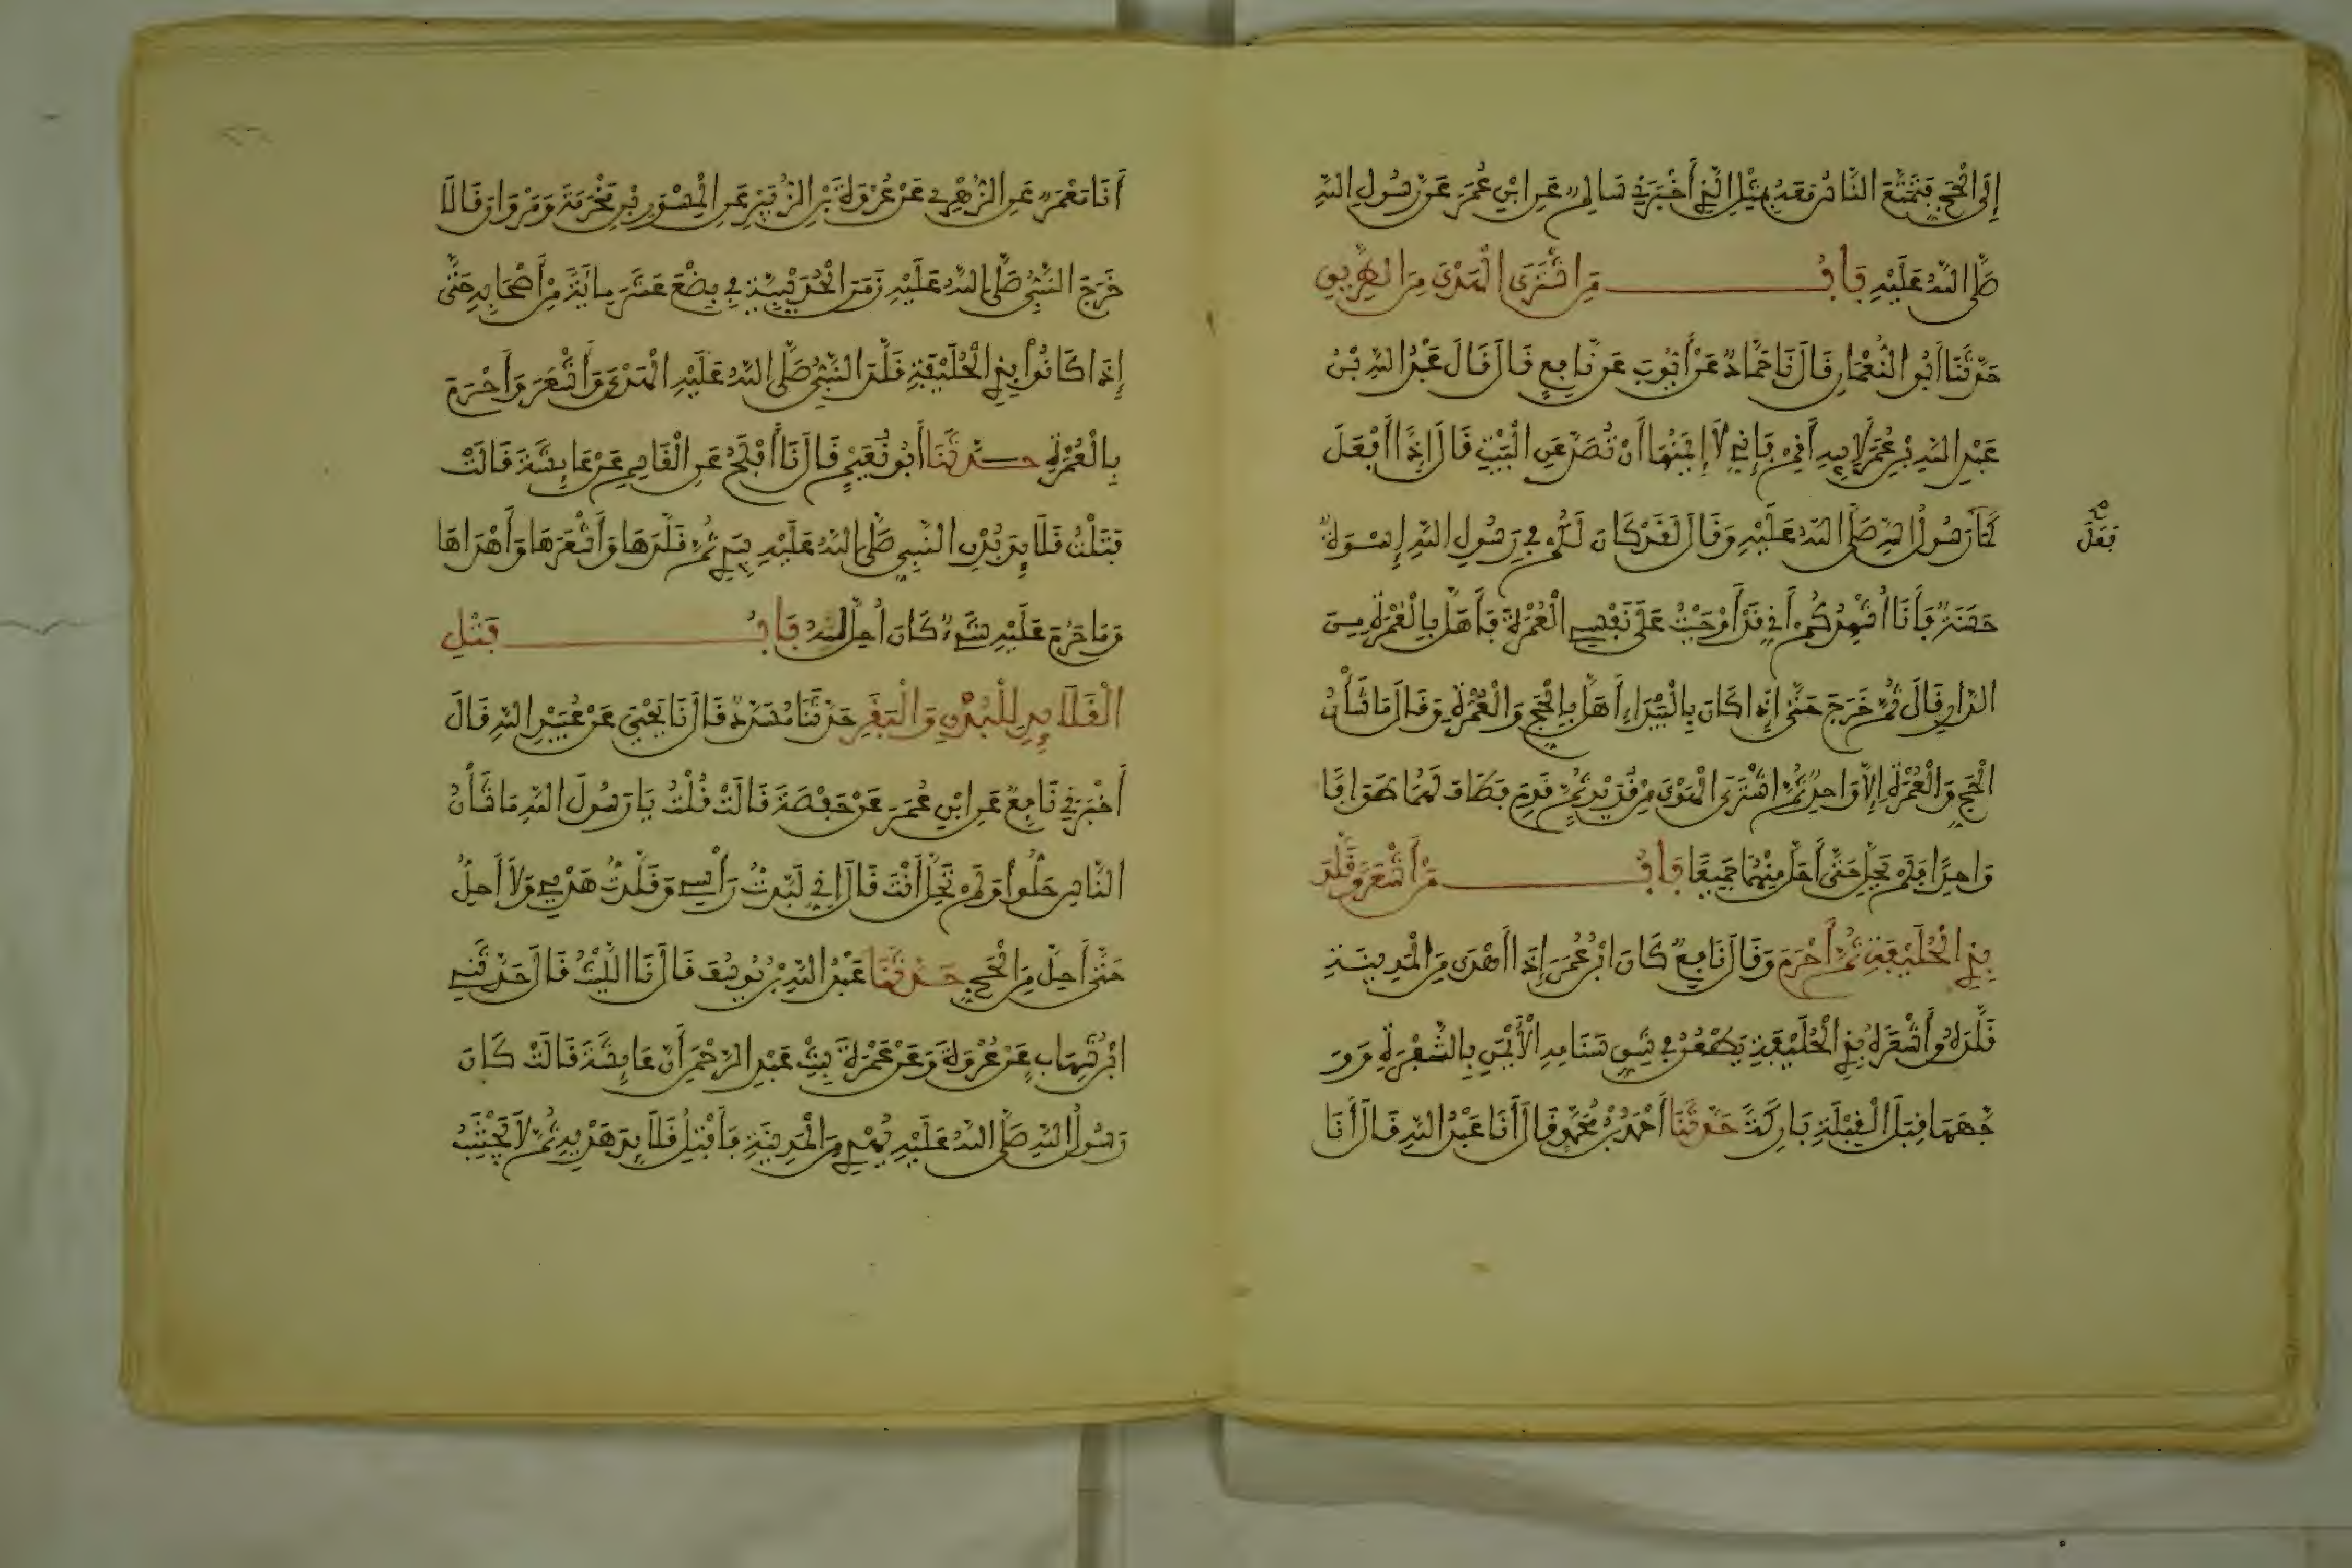 إِلَى الْحَجِّ فَتَمَتَّعَ النَّاسُ مَعَهُ بِمِثْلِ الَّذِي أَخْبَرَنِي سَالِمٌ عَنِ ابْنِ عُمَرَ عَنْ رَسُولِ اللَّهِ
صَلَّى اللَّهُ عَلَيْهِ بَابُ مَنِ اشْتَرَى الْهَدْيَ مِنَ الطَّرِيقِ
حَدَّثَنَا أَبُو النُّعْمَانِ قَالَ نَا حَمَّادٌ عَنْ أَيُّوبَ عَنْ نَافِعٍ قَالَ قَالَ عَبْدُ اللَّهِ بْنُ
عَبْدِ اللَّهِ بْنِ عُمَرَ لِأَبِيهِ أَقِمْ فَإِنِّي لَا إِيمَنُهَا أَنْ تُصَدَّ عَنِ الْبَيْتِ قَالَ إِذًا أَفْعَلَ
كَمَا رَسُولُ اللَّهِ صَلَّى اللَّهُ عَلَيْهِ وَقَالَ لَقَدْ كَانَ لَكُمْ فِي رَسُولِ اللَّهِ إِسْوَةٌ
فَعَلَ صح
حَسَنَةٌ فَأَنَا أُشْهِدُكُمْ أَنِّي قَدْ أَوْجَبْتُ عَلَى نَفْسِي الْعُمْرَةَ فَأَهَلَّ بِالْعُمْرَةِ مِنَ
الدَّارِ قَالَ ثُمَّ خَرَجَ حَتَّى إِذَا كَانَ بِالْبَيْدَاءِ أَهَلَّ بِالْحَجِّ وَالْعُمْرَةِ وَقَالَ مَا شَأْنُ
الْحَجِّ وَالْعُمْرَةِ إِلَّا وَاحِدٌ ثُمَّ اشْتَرَى الْهَدْيَ مِنْ قُدَيْدٍ ثُمَّ قَدِمَ فَطَافَ لَهُمَا طَوَافًا
وَاحِدًا فَلَمْ يَحِلَّ حَتَّى أَحَلَّ مِنْهُمَا جَمِيعًا بَابُ مَنْ أَشْعَرَ وَقَلَّدَ
بِذِي الْحُلَيْفَةِ ثُمَّ أَحْرَمَ وَقَالَ نَافِعٌ كَانَ ابْنُ عُمَرَ إِذَا أَهْدَى مِنَ الْمَدِينَةِ
قَلَّدَهُ وَأَشْعَرَهُ بِذِي الْحُلَيْفَةِ يَطْعُنُ فِي شِقِّ سَنَامِهِ الْأَيْمَنِ بِالشَّفْرَةِ وَوَ
جْهَهَا قِبَلَ الْقِبْلَةِ بَارِكَةً حَدَّثَنَا أَحْمَدُ بْنُ مُحَمَّدٍ قَالَ أَنَا عَبْدُ اللَّهِ قَالَ أَنَا
أَنَا مَعْمَرٌ عَنِ الزُّهْرِيِّ عَنْ عُرْوَةَ بْنِ الزُّبَيْرِ عَنِ الْمِسْوَرِ بْنِ مَخْرَمَةَ وَمَرْوَانَ قَالَا
خَرَجَ النَّبِيُّ صَلَّى اللَّهُ عَلَيْهِ زَمَنَ الْحُدَيْبِيَةِ فِي بِضْعَ عَشَرَ مِائَةً مِنْ أَصْحَابِهِ حَتَّى
إِذَا كَانُوا بِذِي الْحُلَيْفَةِ قَلَّدَ النَّبِيُّ صَلَّى اللَّهُ عَلَيْهِ الْهَدْيَ وَأَشْعَرَ وَأَحْرَمَ
بِالْعُمْرَةِ حَدَّثَنَا أَبُو نُعَيْمٍ قَالَ نَا أَفْلَحُ عَنِ الْقَاسِمِ عَنْ عَائِشَةَ قَالَتْ
فَتَلْتُ قَلَائِدَ بُدْنِ النَّبِيِّ صَلَّى اللَّهُ عَلَيْهِ بِيَدِي ثُمَّ قَلَّدَهَا وَأَشْعَرَهَا وَأَهْدَاهَا
وَمَا حَرُمَ عَلَيْهِ شَيْءٌ كَانَ أُحِلَّ لَهُ بَابُ فَتْلِ
الْقَلَائِدِ لِلْبُدْنِ وَالْبَقَرِ حَدَّثَنَا مُسَدَّدٌ قَالَ نَا يَحْيَى عَنْ عُبَيْدِ اللَّهِ قَالَ
أَخْبَرَنِي نَافِعٌ عَنِ ابْنِ عُمَرَ عَنْ حَفْصَةَ قَالَتْ قُلْتُ يَا رَسُولَ اللَّهِ مَا شَأْنُ
النَّاسِ حَلُّوا وَلَمْ تَحِلَّ أَنْتَ قَالَ إِنِّي لَبَّدْتُ رَأْسِي وَقَلَّدْتُ هَدْيِي وَلَا أَحِلُّ
حَتَّى أَحِلَّ مِنَ الْحَجِّ حَدَّثَنَا عَبْدُ اللَّهِ بْنُ يُوسُفَ قَالَ نَا اللَّيْثُ قَالَ حَدَّثَنِي
ابْنُ شِهَابٍ عَنْ عُرْوَةَ وَعَنْ عَمْرَةَ بِنْتِ عَبْدِ الرَّحْمَنِ أَنَّ عَائِشَةَ قَالَتْ كَانَ
رَسُولُ اللَّهِ صَلَّى اللَّهُ عَلَيْهِ يُهْدِي مِنَ الْمَدِينَةِ فَأَفْتِلُ قَلَائِدَ هَدْيِهِ ثُمَّ لَا يَجْتَنِبُ